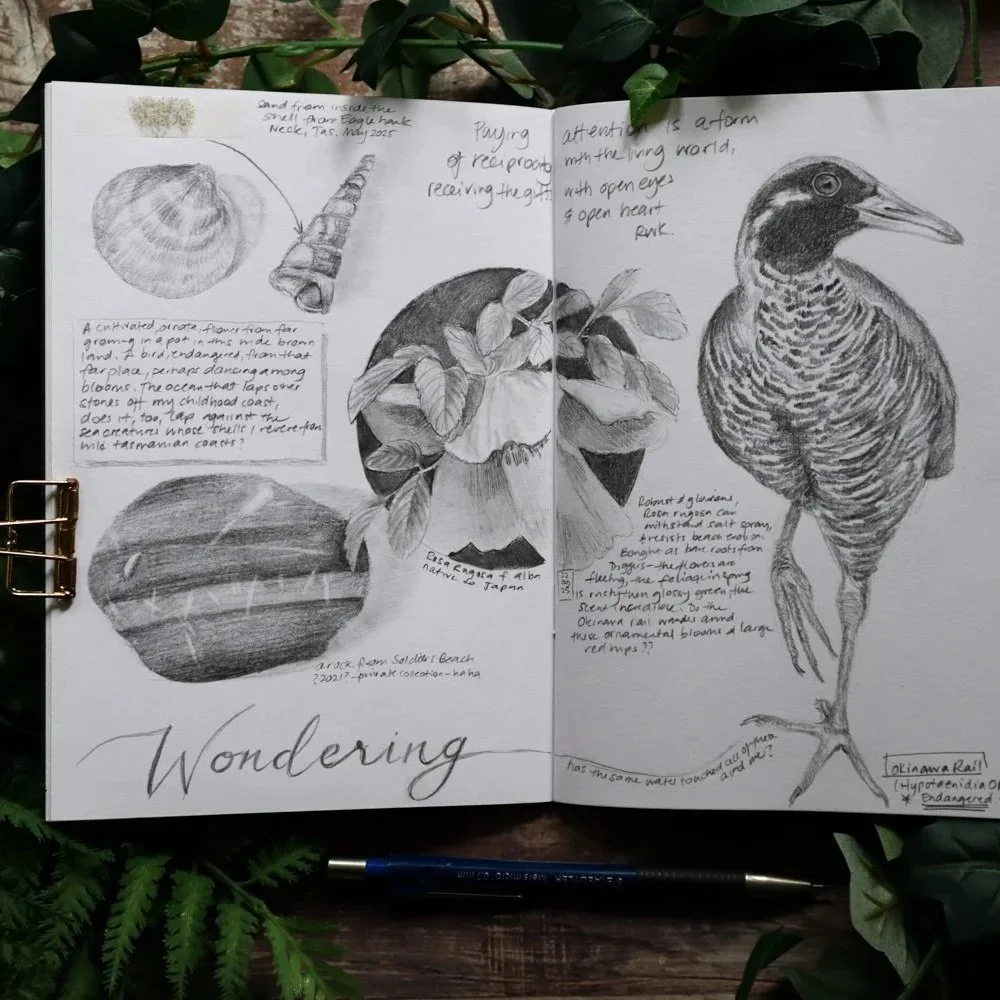 Sand from inside the
shell from Eaglehawk
Neck, Tas. May 2025
Paying attention is a form
of reciprocity with the living world,
receiving the gifts with open eyes
& open heart
RWK.
A cultivated, ornate, flower from far
growing in a pot in this wide brown
land. A bird, endangered, from that
far place, perhaps dancing among
blooms. The ocean that laps other
stones off my childhood coast,
does it, too, lap against the
sea creatures whose shells I revere from
wild tasmanian coasts?
Rosa Rugosa f. alba
native to Japan
Robust & glorious,
Rosa rugosa can
withstand salt spray,
& resists beach erosion.
Bought as bare roots from
Diggers - the flowers are
fleeting, the foliage in spring
is rusty then glossy green, the
scent incredible. Do the
Okinawa rail wander around
these ornamental blooms & large
red hips??
a rock from Soldiers Beach
?2021? - private collection - haha
Wondering
has the same water touched all of these
and me?
Okinawa Rail
(Hypotaenidia O
* Endangered